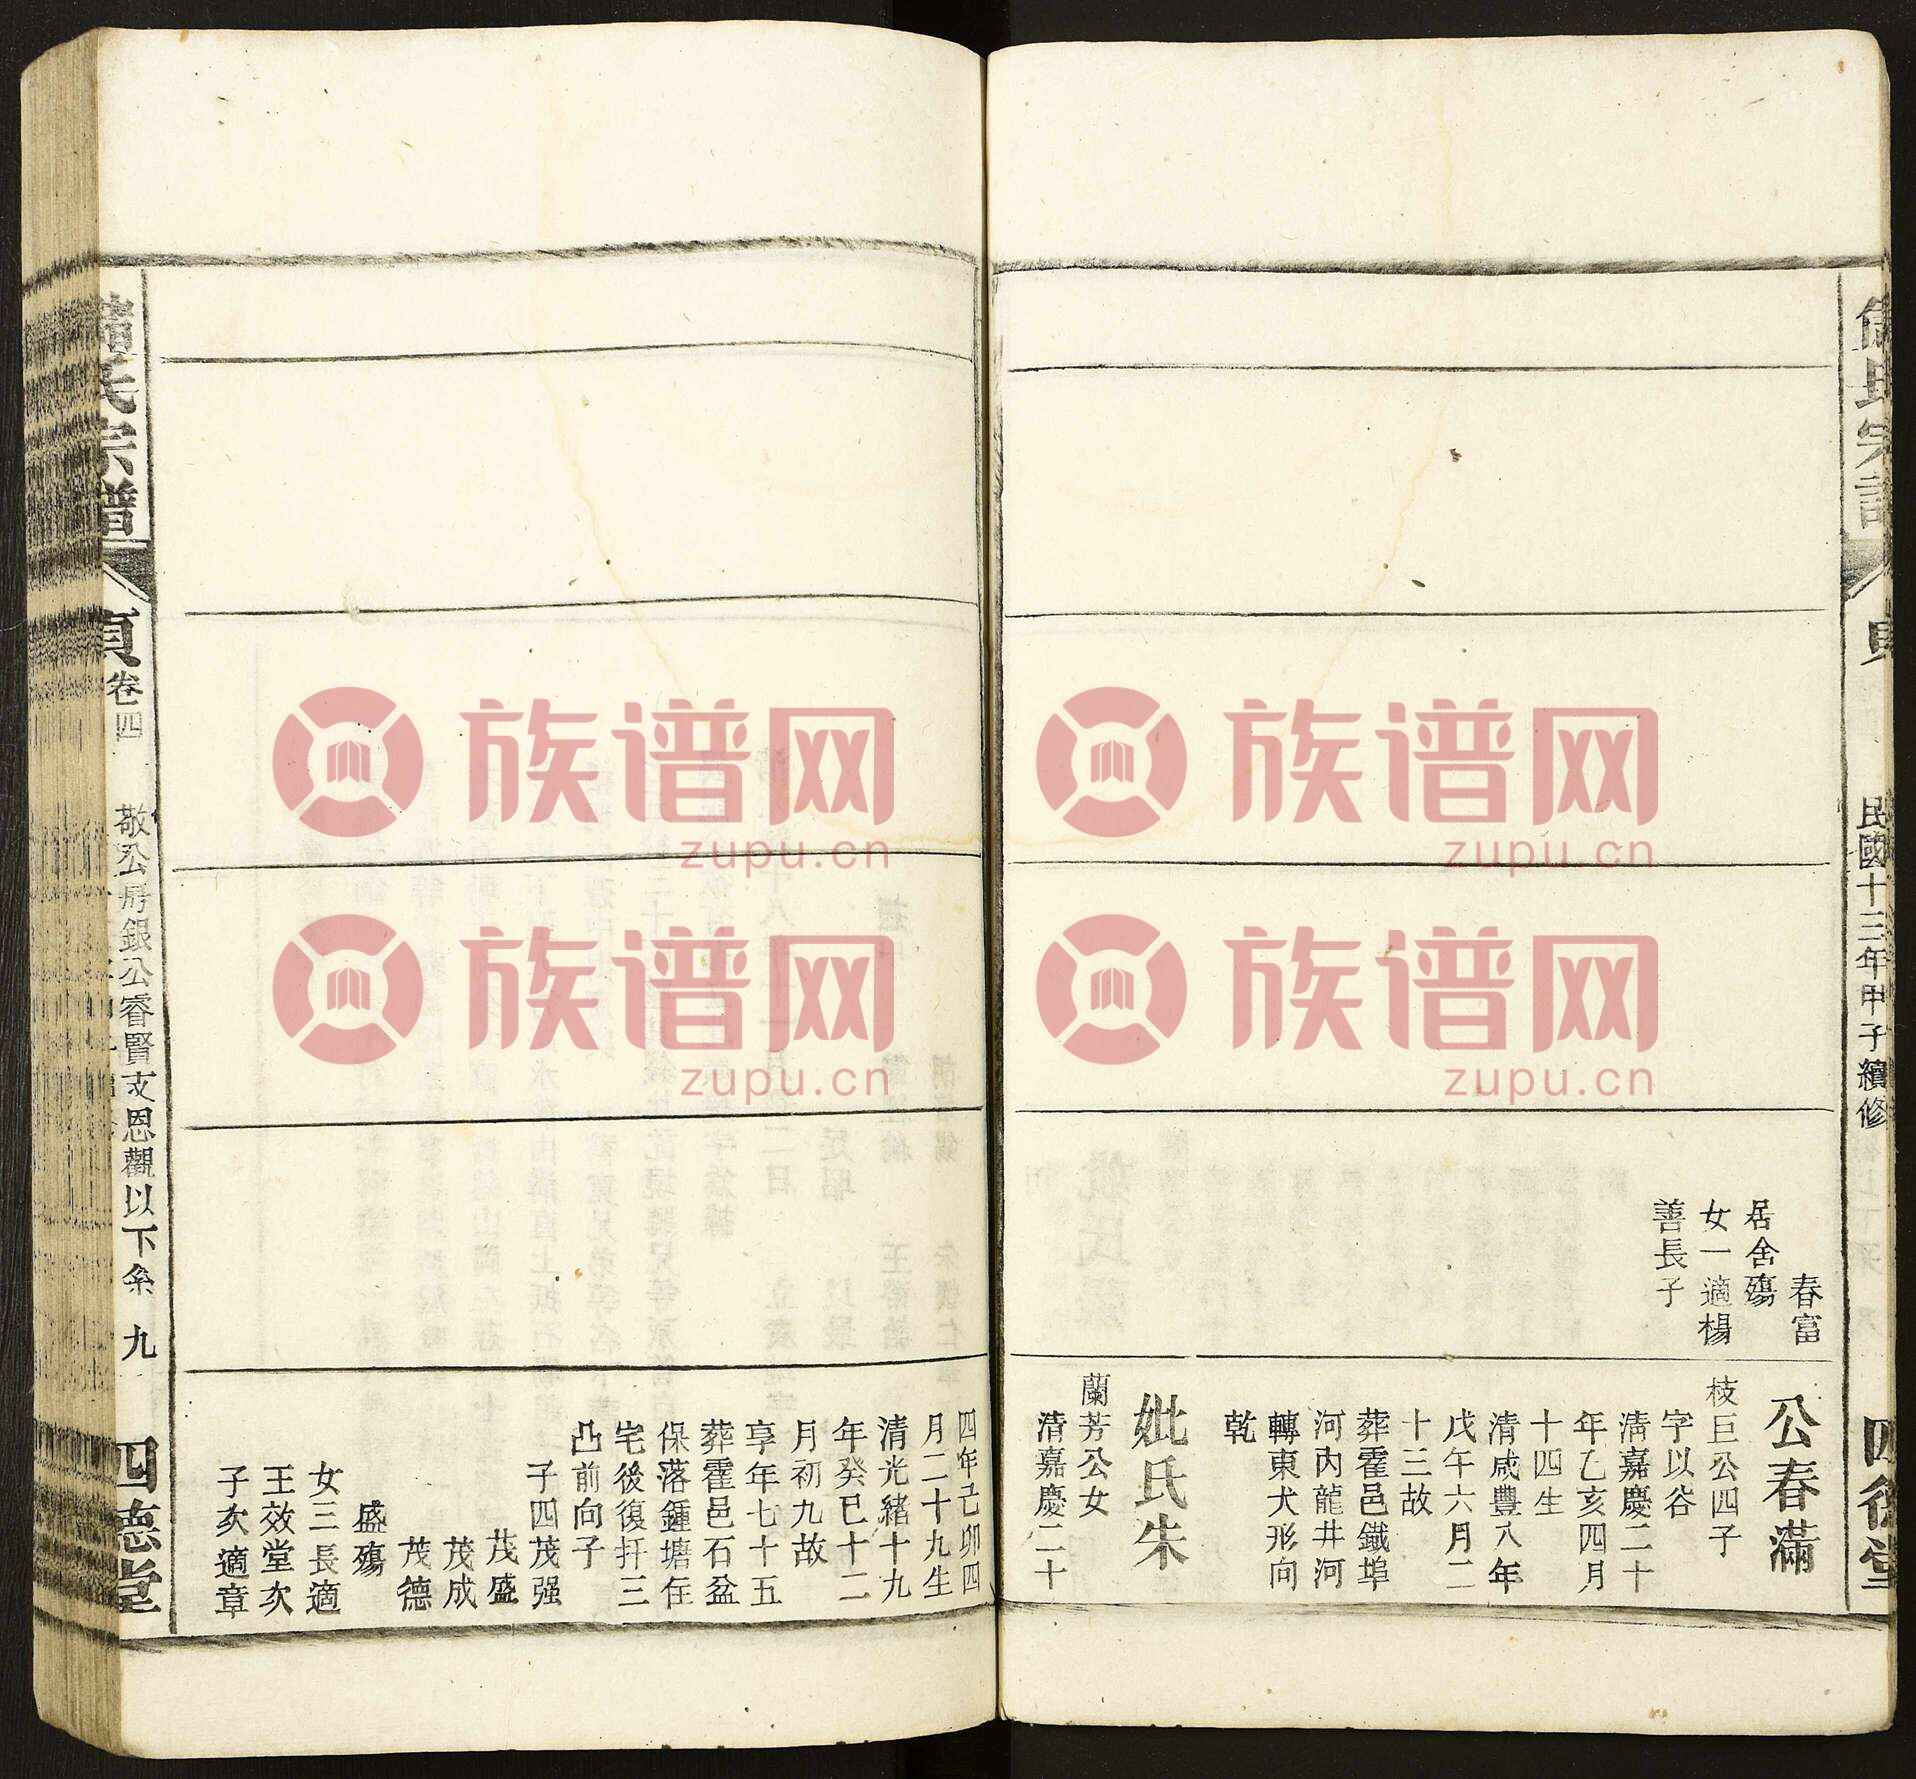 民國十三年甲子續修
春富
居舍殤
女一適楊
善長子
公春滿
枝巨公四子
字以谷
清嘉慶二十
年乙亥四月
十四生
清咸豐八年
戊午六月二
十三故
葬霍邑鐵埠
河內龍井河
轉東犬形向
乾
妣氏朱
蘭芳公女
清嘉慶二十
四年己卯四
月二十九生
清光緒十九
年癸巳十二
月初九故
享年七十五
葬霍邑石盆
保落鍾塘在
宅後復扦三
凸前向子
子四茂强
茂盛
茂成
茂德
盛殤
女三長適
王效堂次
子次適章
氏宗譜
貞卷四
敬公房銀公睿賢支恩觀以下系 九
四德堂
族谱网
zupu.cn
族谱网
zupu.cn
族谱网
zupu.cn
族谱网
zupu.cn